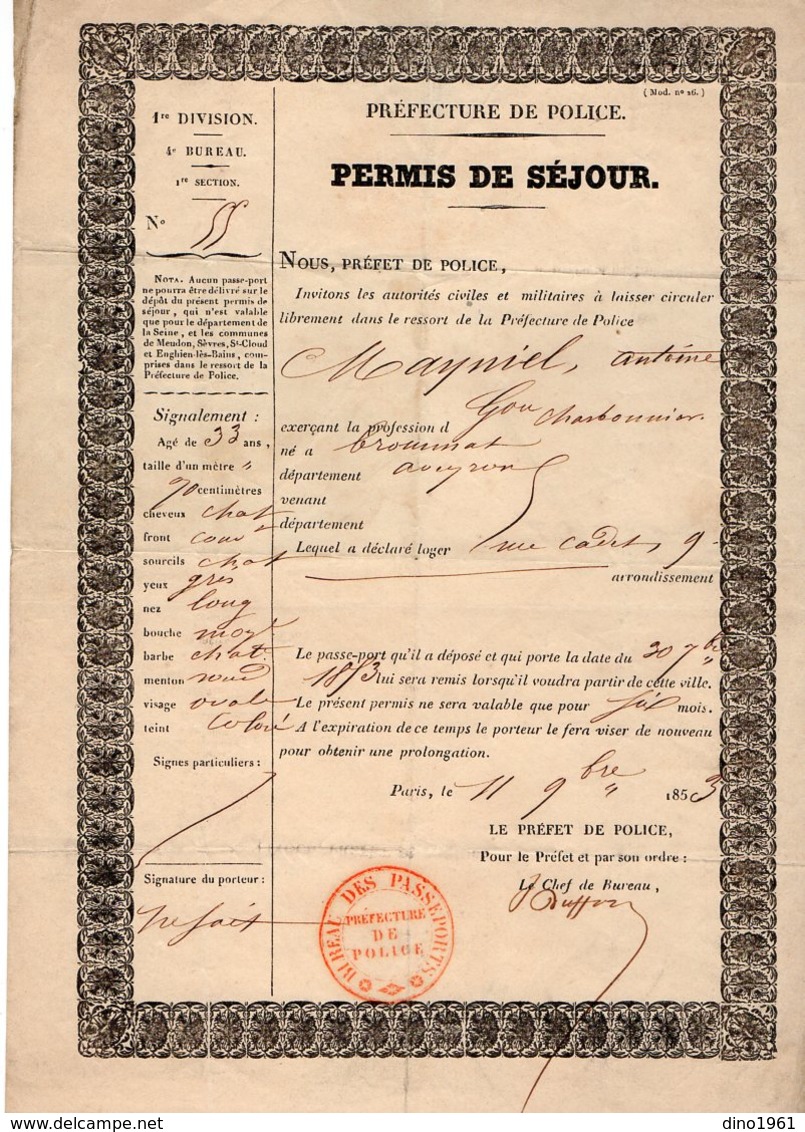 (Mod. nº 26.)
1re DIVISION.
4e BUREAU.
1re SECTION.
Nº 55
NOTA. Aucun passe-port
ne pourra être délivré sur le
dépôt du présent permis de
séjour, qui n'est valable
que pour le département de
la Seine, et les communes
de Meudon, Sèvres, St-Cloud
et Enghien-lès-Bains, com-
prises dans le ressort de la
Préfecture de Police.
Signalement :
Agé de 33 ans,
taille d'un mètre "
70 centimètres
cheveux chat
front couvt
sourcils chat
yeux gris
nez long
bouche moye
barbe chat
menton rond
visage ovale
teint coloré
Signes particuliers :
Signature du porteur :
ne sait
PRÉFECTURE DE POLICE.
PERMIS DE SÉJOUR.
NOUS, PRÉFET DE POLICE,
Invitons les autorités civiles et militaires à laisser circuler
librement dans le ressort de la Préfecture de Police
Mayniel, antoine
exerçant la profession d Gon charbonnier
né a brommat
département aveyron
venant
département
Lequel a déclaré loger rue cadet, 9
arrondissement
Le passe-port qu'il a déposé et qui porte la date du 20 7bre
1853 lui sera remis lorsqu'il voudra partir de cette ville.
Le présent permis ne sera valable que pour six mois.
A l'expiration de ce temps le porteur le fera viser de nouveau
pour obtenir une prolongation.
Paris, le 11 9bre 1853
LE PRÉFET DE POLICE,
Pour le Préfet et par son ordre :
Le Chef de Bureau,
BUREAU DES PASSEPORTS
PRÉFECTURE
DE
POLICE
www.delcampe.net
dino1961